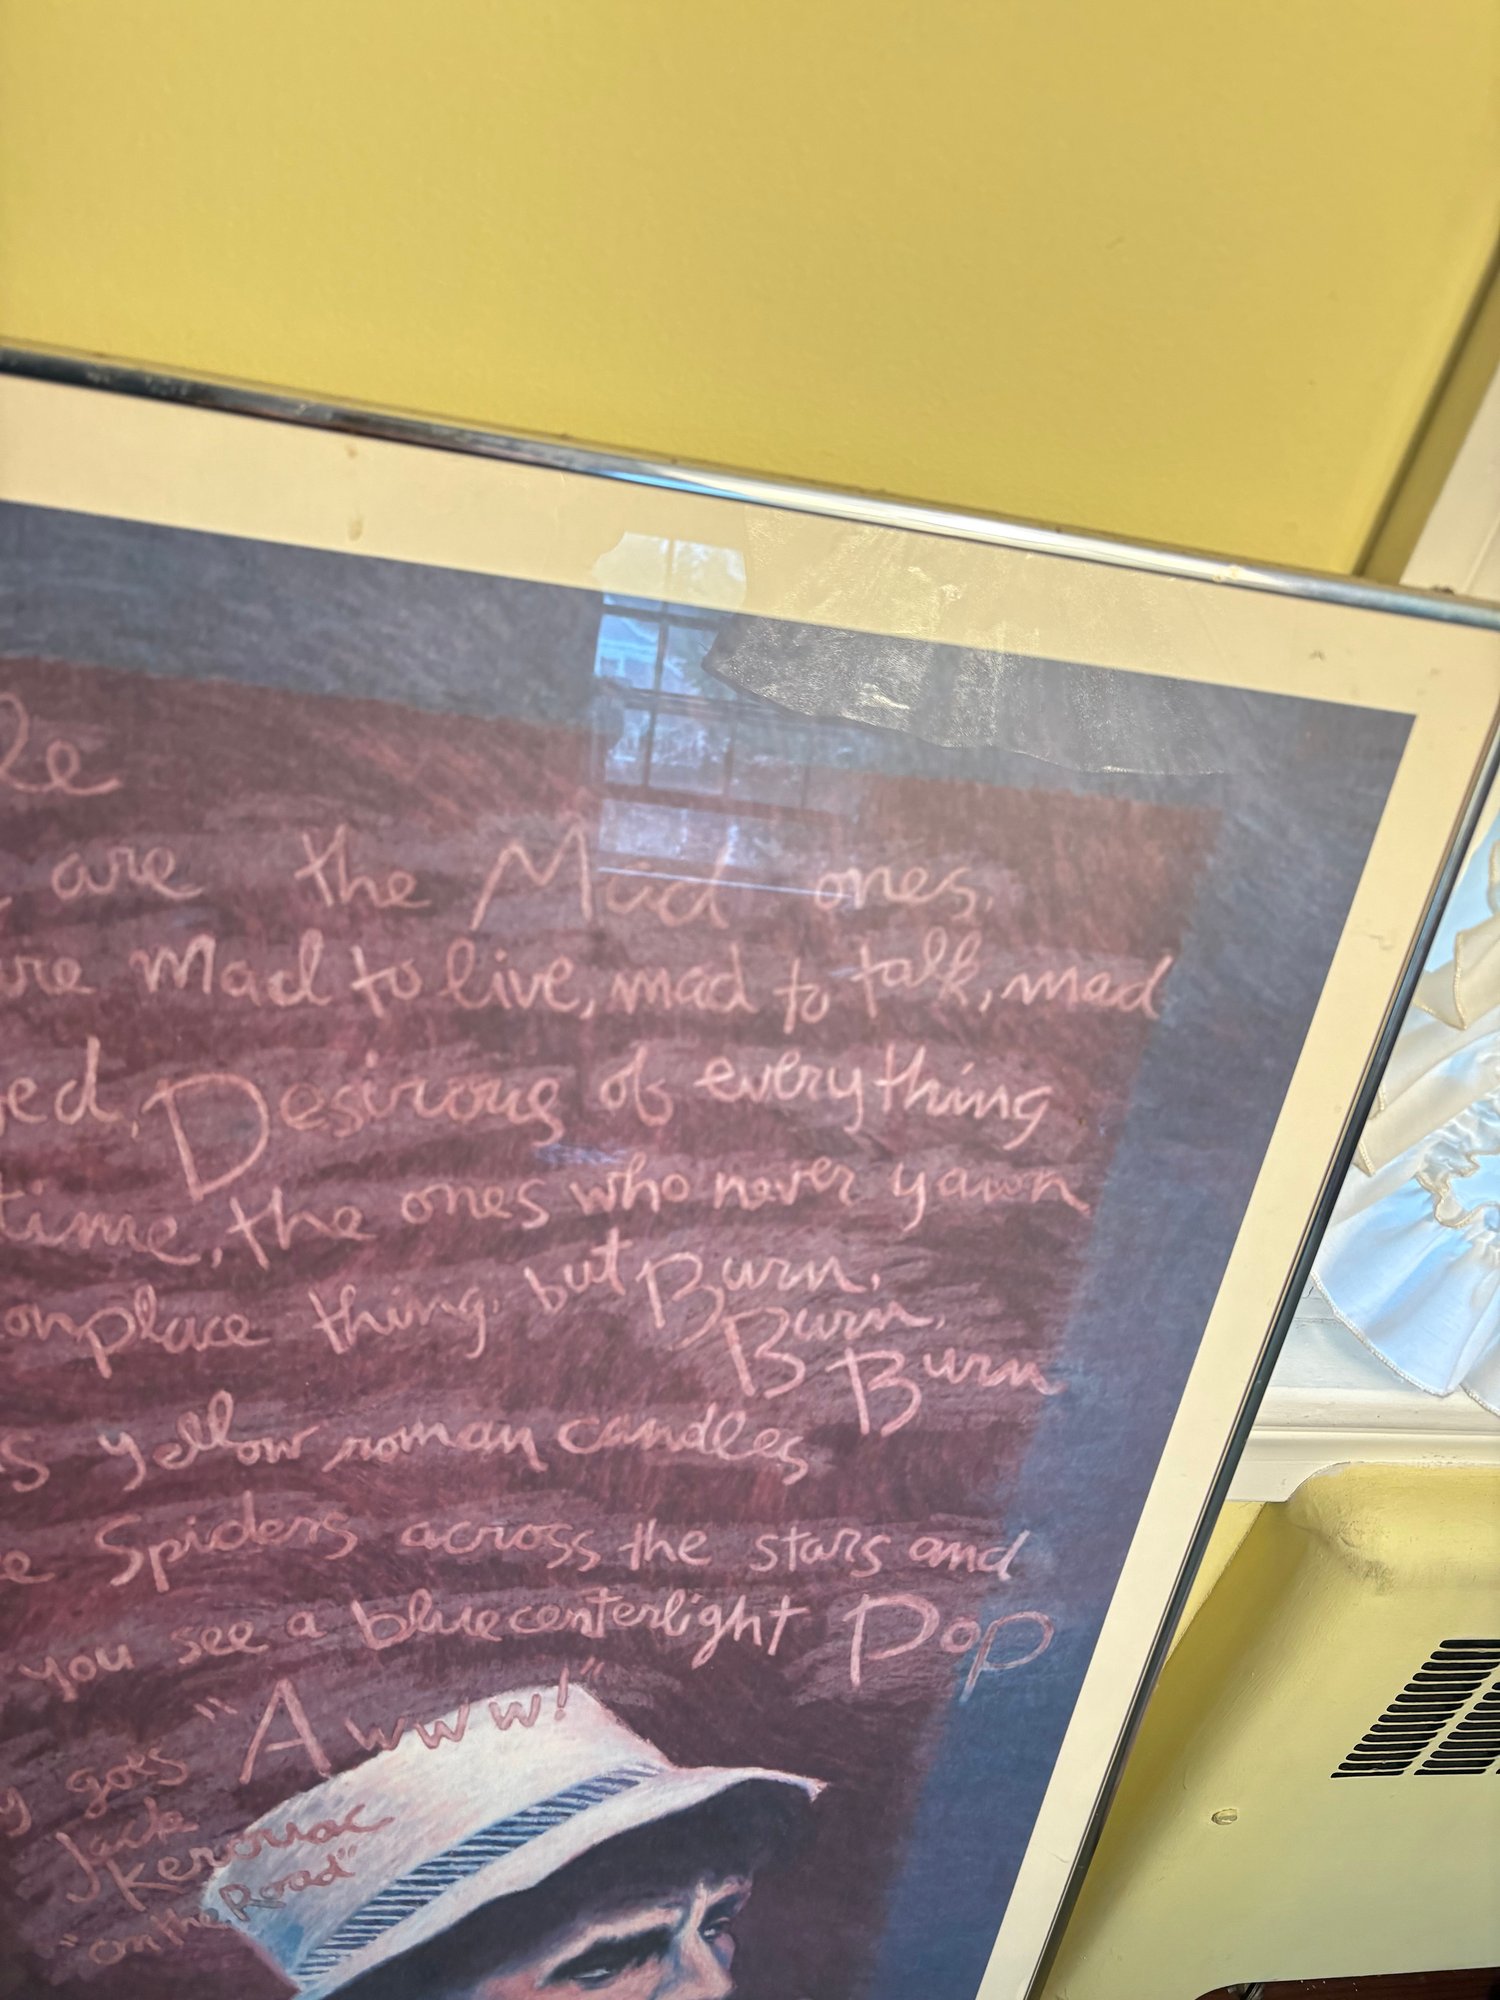 are the Mad ones,
Mad to live, mad to talk, mad
Desirous of everything
time, the ones who never yawn
thing, but Burn,
Burn,
Burn
yellow roman candles
Spiders across the stars and
you see a bluecenterlight Pop
"Awww!"
goes
Jack
Kerouac
"on the Road"